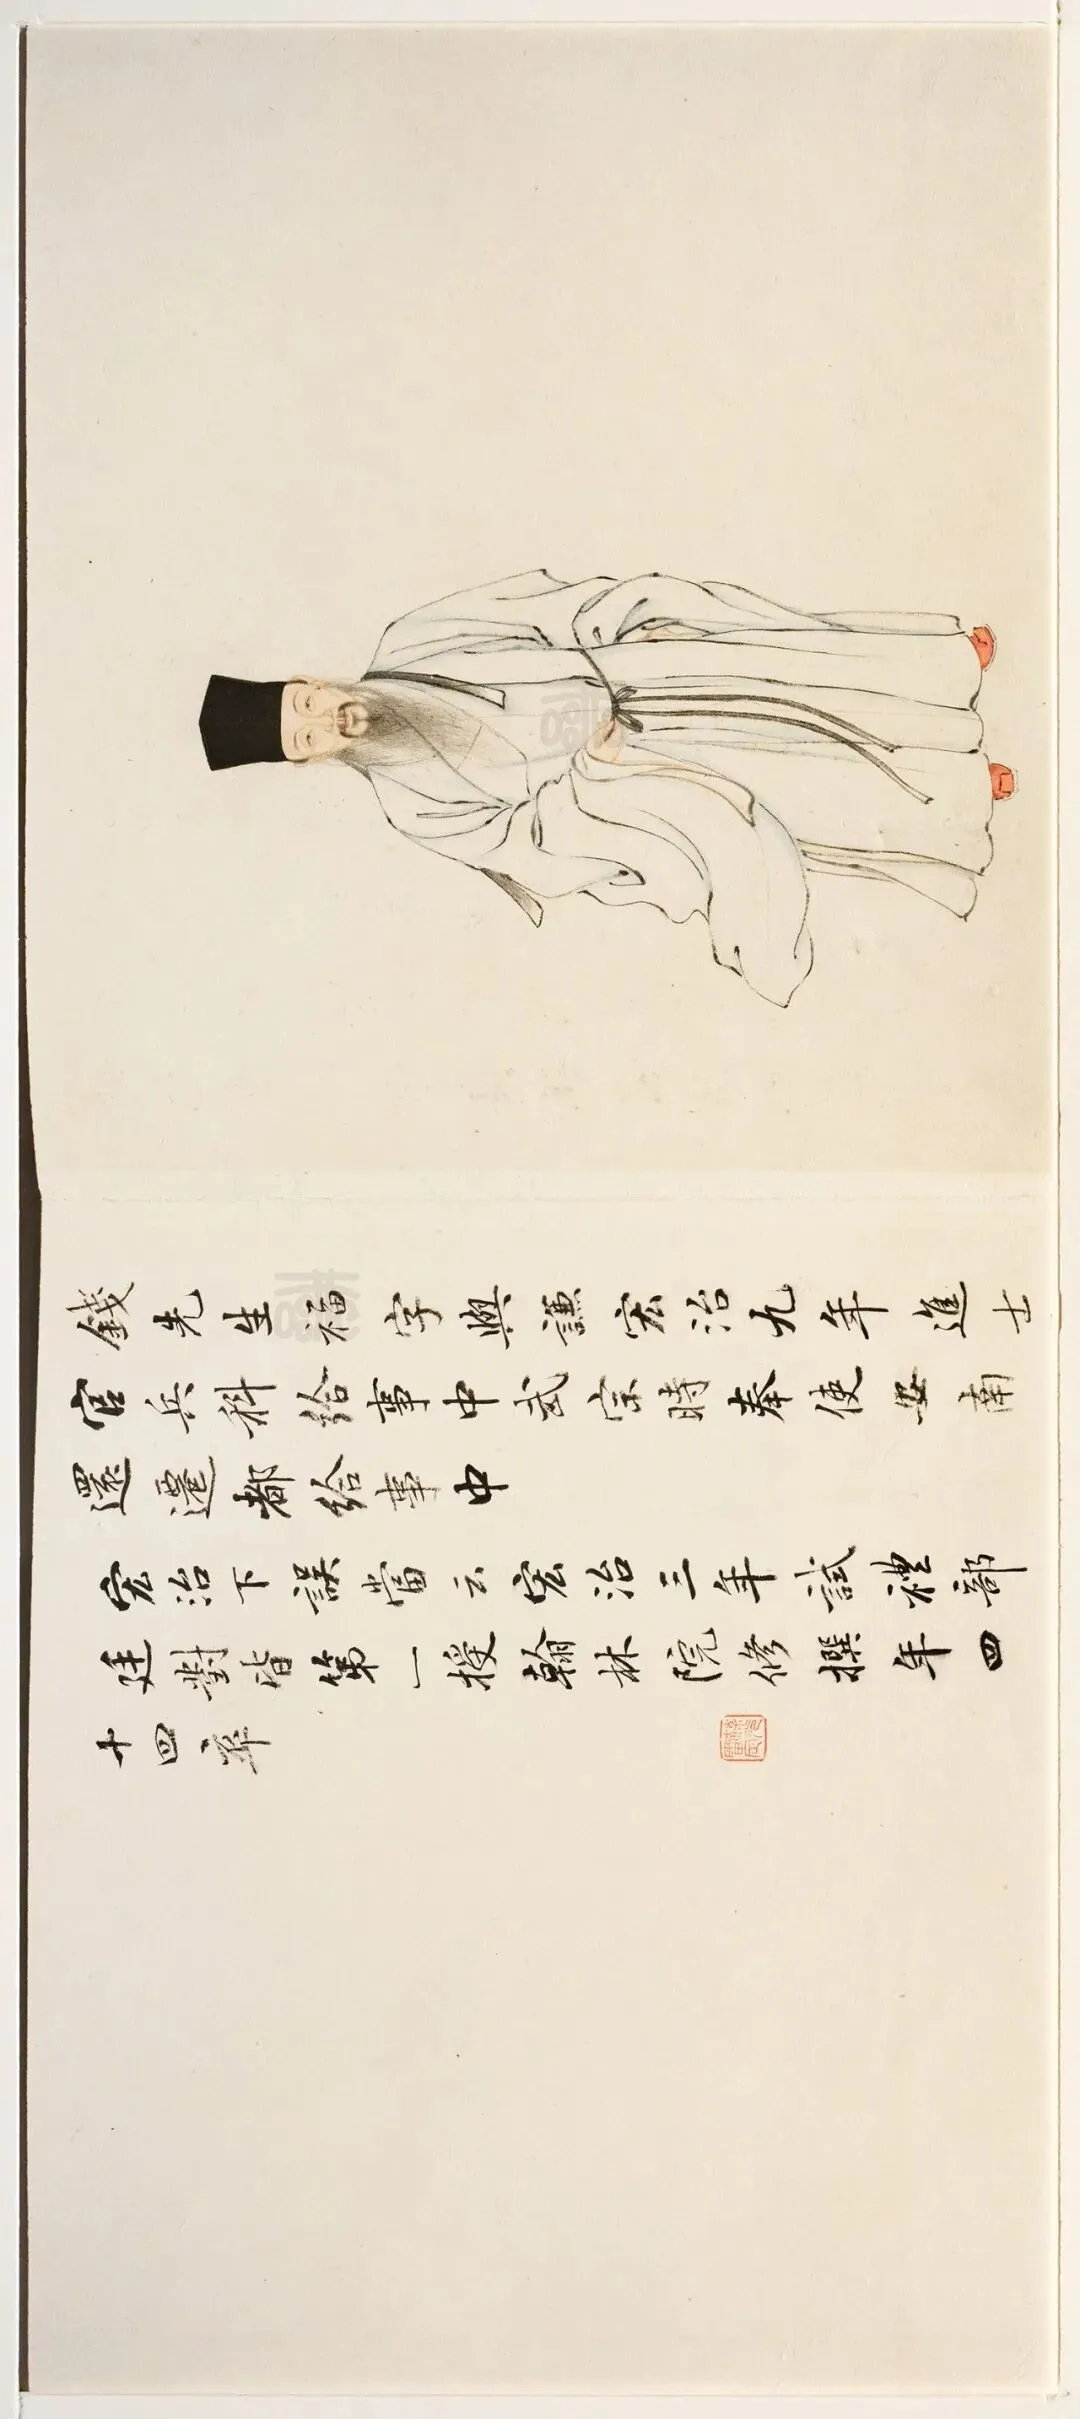 錢先生福字與謙宏治九年進士
官兵科給事中武宗時奉使安南
還遷都給事中
宏治下誤當云宏治三年試禮部
廷對皆第一授翰林院修撰年四
十四卒